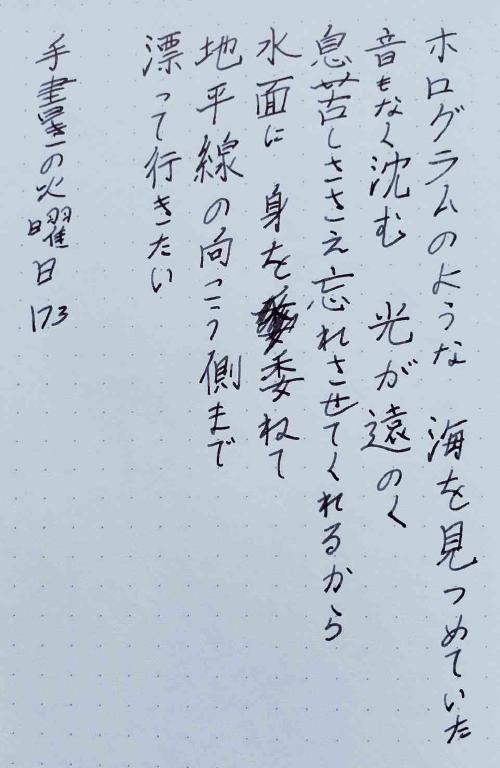 ホログラムのような　海を見つめていた
音もなく沈む　光が遠のく
息苦しささえ忘れさせてくれるから
水面に　身を委ねて
地平線の向こう側まで
漂って行きたい
手書きの火曜日 173